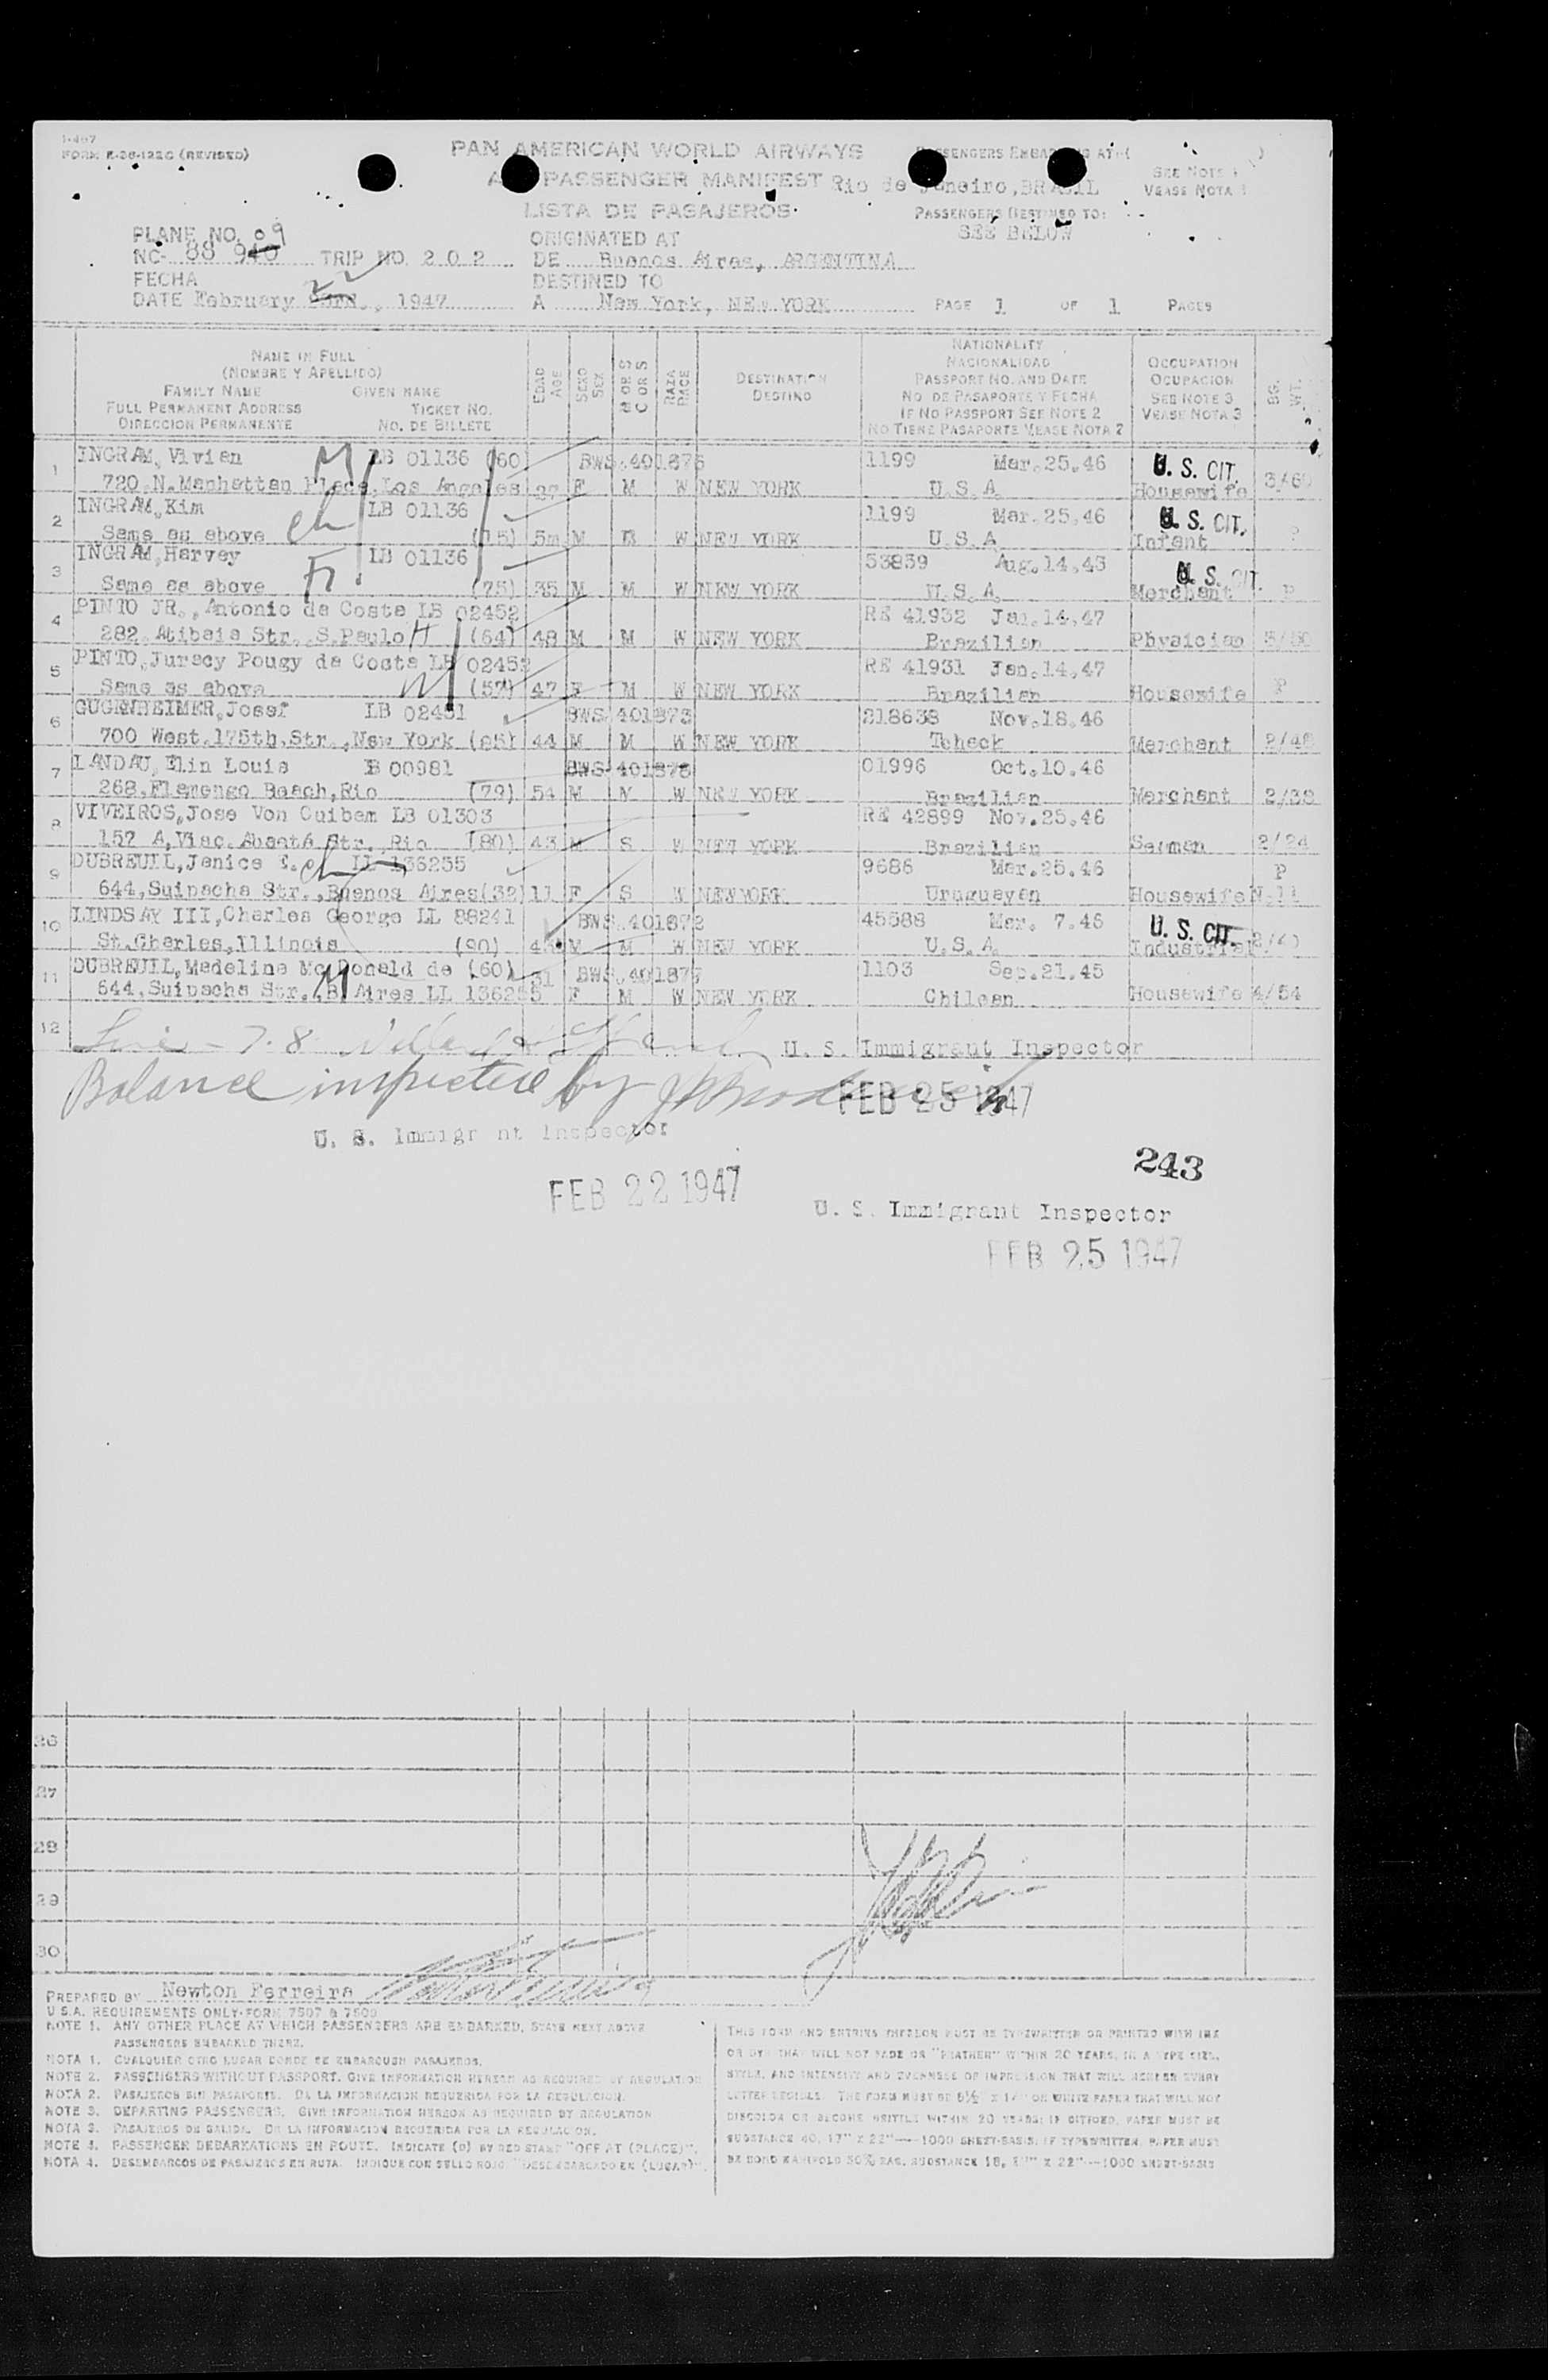 I-467
FORM E-36-122G (REVISED)
PAN AMERICAN WORLD AIRWAYS
PASSENGER MANIFEST
LISTA DE PASAJEROS
PASSENGERS EMBARKING AT:(
Rio de Janeiro, BRASIL
SEE NOTE 1
VEASE NOTA 1
PASSENGERS DESTINED TO:
SEE BELOW
PLANE NO. 09
NC- 88 940 TRIP NO. 202
FECHA 22
DATE February , 1947
ORIGINATED AT
DE Buenos Aires, ARGENTINA
DESTINED TO
A New York, NEW YORK
PAGE 1 OF 1 PAGES
NAME IN FULL
(NOMBRE Y APELLIDO)
FAMILY NAME GIVEN NAME
FULL PERMANENT ADDRESS TICKET NO.
DIRECCION PERMANENTE NO. DE BILLETE
EDAD AGE
SEXO SEX
M OR S C OR S
RAZA RACE
DESTINATION
DESTINO
NATIONALITY
NACIONALIDAD
PASSPORT NO. AND DATE
NO. DE PASAPORTE Y FECHA
IF NO PASSPORT SEE NOTE 2
NO TIENE PASAPORTE VEASE NOTA 2
OCCUPATION
OCUPACION
SEE NOTE 3
VEASE NOTA 3
BG. WT.
1 INGRAM, Vivian M LB 01136 (60) BWS.401876 1199 Mar.25.46 U. S. CIT.
720.N.Manhattan Place,Los Angeles F M W NEW YORK U.S.A. Housewife 3/60
2 INGRAM, Kim ch LB 01136 1199 Mar.25.46 U. S. CIT.
Same as above (15) 5m M B W NEW YORK U.S.A Infant
3 INGRAM, Harvey F. LB 01136 53839 Aug.14.45 U. S. CIT.
Same as above (75) 35 M M W NEW YORK U.S.A. Merchant P
4 PINTO JR., Antonio da Costa LB 02452 RE 41932 Jan.14.47
282.Atibaia Str.,S.Paulo H (64) 48 M M W NEW YORK Brazilian Physician 5/50
5 PINTO, Juracy Pougy da Costa LB 02452 RE 41931 Jan.14.47
Same as above W (57) 47 F M W NEW YORK Brazilian Housewife P
6 GUGENHEIMER, Josef LB 02451 BWS 401873 218638 Nov.18.46
700 West.175th.Str.,New York (85) 44 M M W NEW YORK Tcheck Merchant 2/48
7 LANDAU, Elin Louis B 00981 BWS 401875 01996 Oct.10.46
268,Flamengo Beach,Rio (79) 54 M M W NEW YORK Brazilian Merchant 2/38
8 VIVEIROS, Jose Von Cuibem LB 01303 RE 42899 Nov.25.46
157 A,Visc.Abaeté Str.,Rio (80) 43 M S W NEW YORK Brazilian Saeman 2/24
9 DUBREUIL, Janice E. ch LL 136255 9686 Mar.25.46 P
644,Suipacha Str.,Buenos Aires(32) 11 F S W NEWYORK Uruguayan Housewife N.11
10 LINDSAY III, Charles George LL 88241 BWS.401872 45588 Mar. 7.46 U. S. CIT.
St.Charles,Illinois (90) M M W NEW YORK U.S.A. Industrial
11 DUBREUIL, Madeline Mc Donald de (60) 31 BWS.401877 1103 Sep.21.45
644,Suipacha Str.,B.Aires LL 136255 M F M W NEW YORK Chilean Housewife 4/54
12 Line - 7.8 U. S. Immigrant Inspector
Balance inspected by
FEB 25 1947
U. S. Immigrant Inspector
FEB 22 1947
243
U. S. Immigrant Inspector
FEB 25 1947
26
27
28
29
30
PREPARED BY Newton Ferreira
U S.A. REQUIREMENTS ONLY-FORM 7507 & 7509
NOTE 1. ANY OTHER PLACE AT WHICH PASSENGERS ARE EMBARKED, STATE NEXT ABOVE
PASSENGERS EMBARKED THERE.
NOTA 1. CUALQUIER OTRO LUGAR DONDE SE EMBARQUEN PASAJEROS.
NOTE 2. PASSENGERS WITHOUT PASSPORT. GIVE INFORMATION HEREON AS REQUIRED BY REGULATION
NOTA 2. PASAJEROS SIN PASAPORTE. DA LA INFORMACION REQUERIDA POR LA REGULACION.
NOTE 3. DEPARTING PASSENGERS. GIVE INFORMATION HEREON AS REQUIRED BY REGULATION
NOTA 3. PASAJEROS DE SALIDA. DA LA INFORMACION REQUERIDA POR LA REGULACION.
NOTE 4. PASSENGER DEBARKATIONS EN ROUTE. INDICATE (D) BY RED STAMP "OFF AT (PLACE)".
NOTA 4. DESEMBARCOS DE PASAJEROS EN RUTA. INDIQUE CON SELLO ROJO "DESEMBARCADO EN (LUGAR)".
THIS FORM AND ENTRIES THEREON MUST BE TYPEWRITTEN OR PRINTED WITH INK
OR DYE THAT WILL NOT FADE OR "FEATHER" WITHIN 20 YEARS, IN A TYPE SIZE,
STYLE, AND INTENSITY AND EVENNESS OF IMPRESSION THAT WILL RENDER EVERY
LETTER LEGIBLE. THE FORM MUST BE 8½ X 14" ON WHITE PAPER THAT WILL NOT
DISCOLOR OR BECOME BRITTLE WITHIN 20 YEARS; IF DITTOED, PAPER MUST BE
SUBSTANCE 40, 17" X 22"—1000 SHEET-BASIS; IF TYPEWRITTEN, PAPER MUST
BE BOND MANIFOLD 50% RAG, SUBSTANCE 18, 17" X 22"—1000 SHEET-BASIS